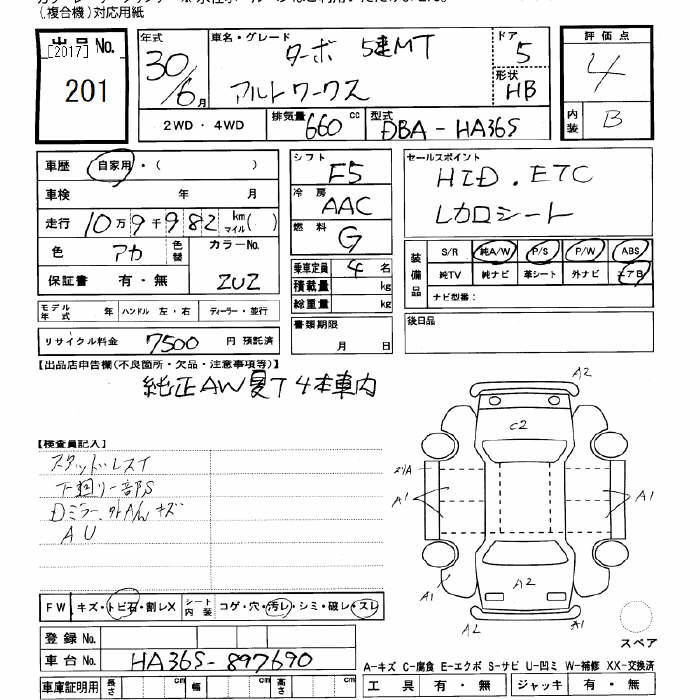 (複合機)対応用紙
出品No.
[2017]
201
年式
30/6月
車名・グレード
ターボ 5速MT
アルトワークス
ドア
5
形状
HB
評価点
4
内装
B
2WD・4WD
排気量
660 cc
型式
DBA-HA36S
車歴 自家用・( )
車検 年 月
走行 10万9千982 km マイル( )
色 アカ 色替 カラーNo.
ZUZ
保証書 有・無
シフト
F5
冷房
AAC
燃料
G
乗車定員 4 名
積載量 kg
総重量 kg
セールスポイント
HID.ETC
レカロシート
装備品
S/R 純A/W P/S P/W ABS
純TV 純ナビ 革シート 外ナビ エアB
ナビ型番:
モデル年式 年 ハンドル 左・右 ディーラー・並行
リサイクル料金 7500 円 預託済
書類期限
月 日
後日品
【出品店申告欄(不良箇所・欠品・注意事項等)】
純正AW夏T4本車内
【検査員記入】
スタッドレスT
下廻り一部S
Dミラー、外Aルキズ
AU
A2
C2
A1
A1
A2
A1
A1
A2
A2
スペア
FW キズ・トビ石・割レX シート内装 コゲ・穴・汚レ・シミ・破レ・スレ
登録No.
車台No. HA36S-897690
車庫証明用 長さ cm 幅 cm 高さ cm
A-キズ C-腐食 E-エクボ S-サビ U-凹ミ W-補修 XX-交換済
工具 有・無 ジャッキ 有・無